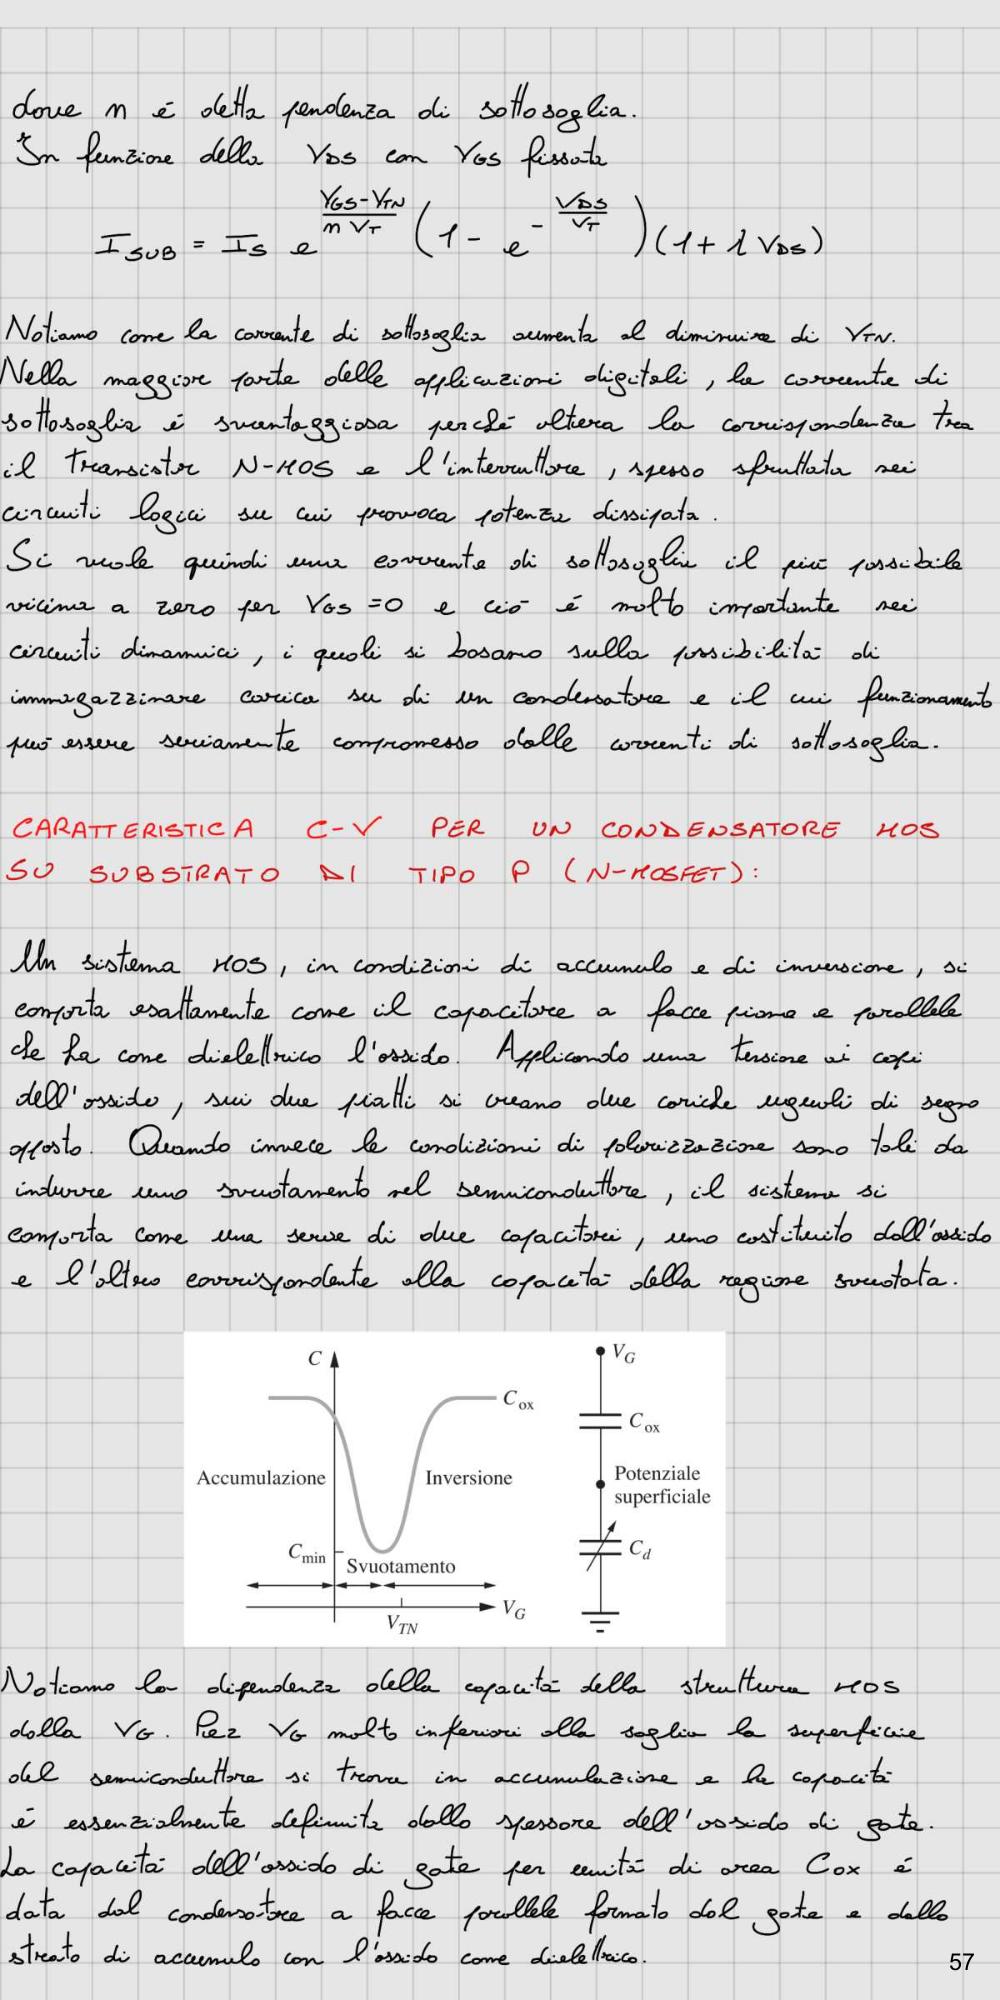 dove n é detta pendenza di sottosoglia.
In funzione della VDS con VGS fissata
I_SUB = I_S e^((VGS-VTN)/(n VT)) (1 - e^(-VDS/VT)) (1 + λ VDS)
Notiamo come la corrente di sottosoglia aumenta al diminuire di VTN.
Nella maggior parte delle applicazioni digitali, la corrente di
sottosoglia é svantaggiosa perché altera la corrispondenza tra
il transistor N-MOS e l'interruttore, spesso sfruttata nei
circuiti logici su cui provoca potenza dissipata.
Si vuole quindi una corrente di sottosoglia il piú possibile
vicina a zero per VGS =0 e ció é molto importante nei
circuiti dinamici, i quali si basano sulla possibilitá di
immagazzinare carica su di un condensatore e il cui funzionamento
puó essere seriamente compromesso dalle correnti di sottosoglia.
CARATTERISTICA C-V PER UN CONDENSATORE MOS
SU SUBSTRATO DI TIPO P (N-MOSFET):
Un sistema MOS, in condizioni di accumulo e di inversione, si
comporta esattamente come il capacitore a facce piane e parallele
che ha come dielettrico l'ossido. Applicando una tensione ai capi
dell'ossido, sui due piatti si creano due cariche uguali di segno
opposto. Quando invece le condizioni di polarizzazione sono tali da
indurre uno svuotamento nel semiconduttore, il sistema si
comporta come una serie di due capacitori, uno costituito dall'ossido
e l'altro corrispondente alla capacitá della regione svuotata.
C
C_ox
Accumulazione
Inversione
C_min
Svuotamento
V_TN
V_G
V_G
C_ox
Potenziale
superficiale
C_d
Notiamo la dipendenza della capacitá della struttura MOS
dalla VG. Per VG molto inferiori alla soglia la superficie
del semiconduttore si trova in accumulazione e la capacitá
é essenzialmente definita dallo spessore dell'ossido di gate.
La capacitá dell'ossido di gate per unitá di area Cox é
data dal condensatore a facce parallele formato dal gate e dallo
strato di accumulo con l'ossido come dielettrico.
57